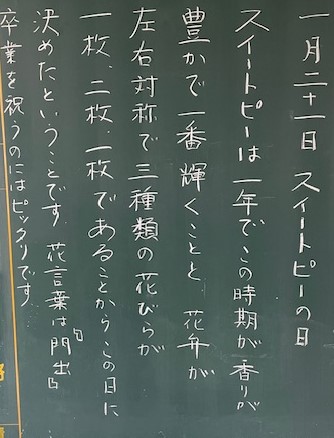 一月二十一日 スイートピーの日
スイートピーは一年でこの時期が香りが
豊かで一番輝くことと 花弁が
左右対称で三種類の花びらが
一枚、二枚、一枚であることからこの日に
決めたということです。花言葉は「門出」
卒業を祝うのにはピッタリです